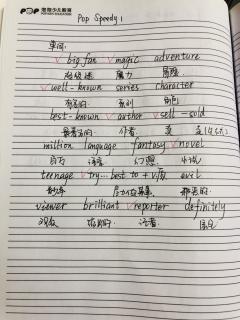 POP 泡泡少儿教育
Pop Speedy 1
单词:
√ big fan √ magic adventure
超级迷 魔力 冒险
√ well-known series character
有名的 系列 角色
best-known √ author √ sell - sold
最著名的 作者 卖 卖(过去式)
million language fantasy √ novel
百万 语言 幻想 小说
teenage √ try... best to + v原 evil
尽力做某事 邪恶的
viewer brilliant √ reporter definitely
观众 记者